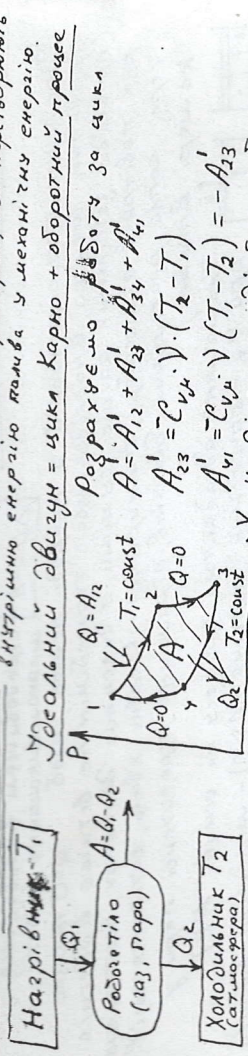 внутрішню енергію палива у механічну енергію.
Ідеальний двигун = цикл Карно + оборотний процес
Нагрівник T₁
Q₁
Робоче тіло
(газ, пара)
A=Q₁-Q₂
Q₂
Холодильник T₂
(атмосфера)
P
1
Q₁=A₁₂
T₁=const
2
Q=0
A
Q=0
4
3
T₂=const
Q₂
Розрахуємо роботу за цикл
A'=A'₁₂ + A'₂₃ + A'₃₄ + A'₄₁
A'₂₃ = -C_{V,μ}·ν·(T₂-T₁)
A'₄₁ = -C_{V,μ}·ν(T₁-T₂) = -A'₂₃